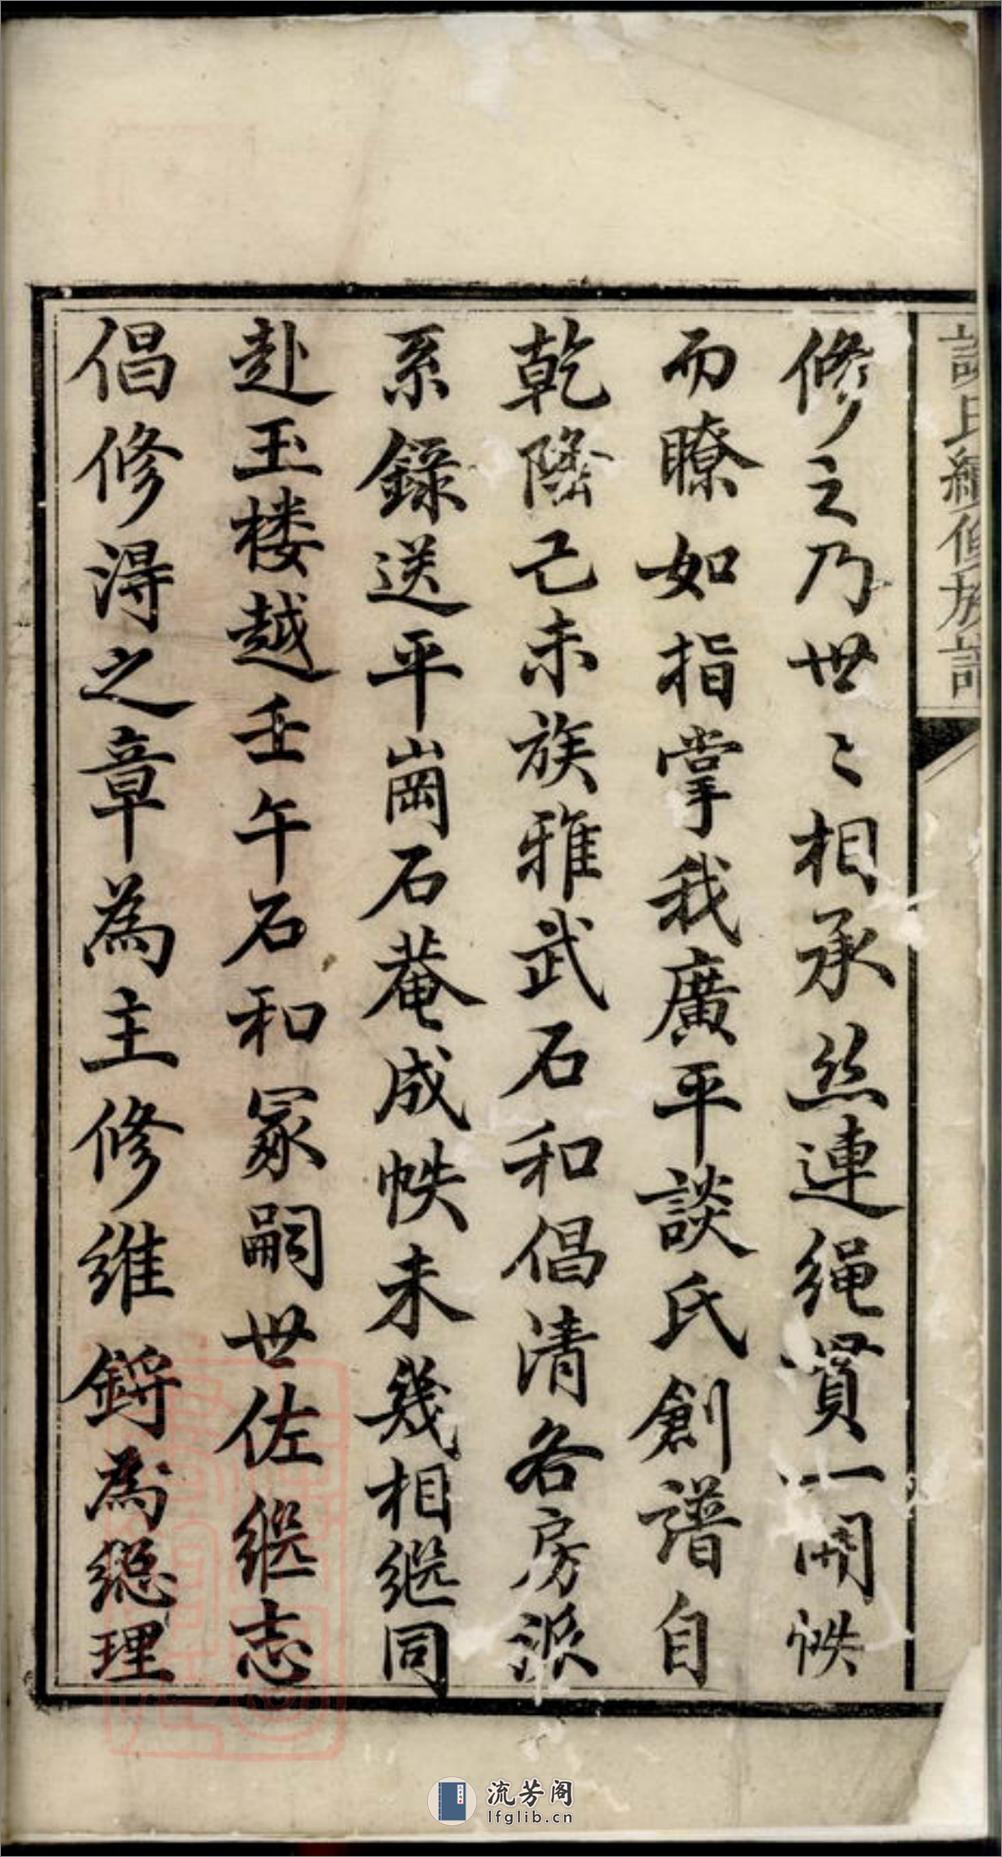 談氏續修族譜
修之乃世〻相承丝連绳貫一開帙
而瞭如指掌我廣平談氏創譜自
乾隆己未族雅武石和倡清各房派
系錄送平崗石菴成帙未幾相継同
赴玉楼越壬午石和冢嗣世佐継志
倡修淂之章為主修維鏘為総理
流芳阁
lfglib.cn